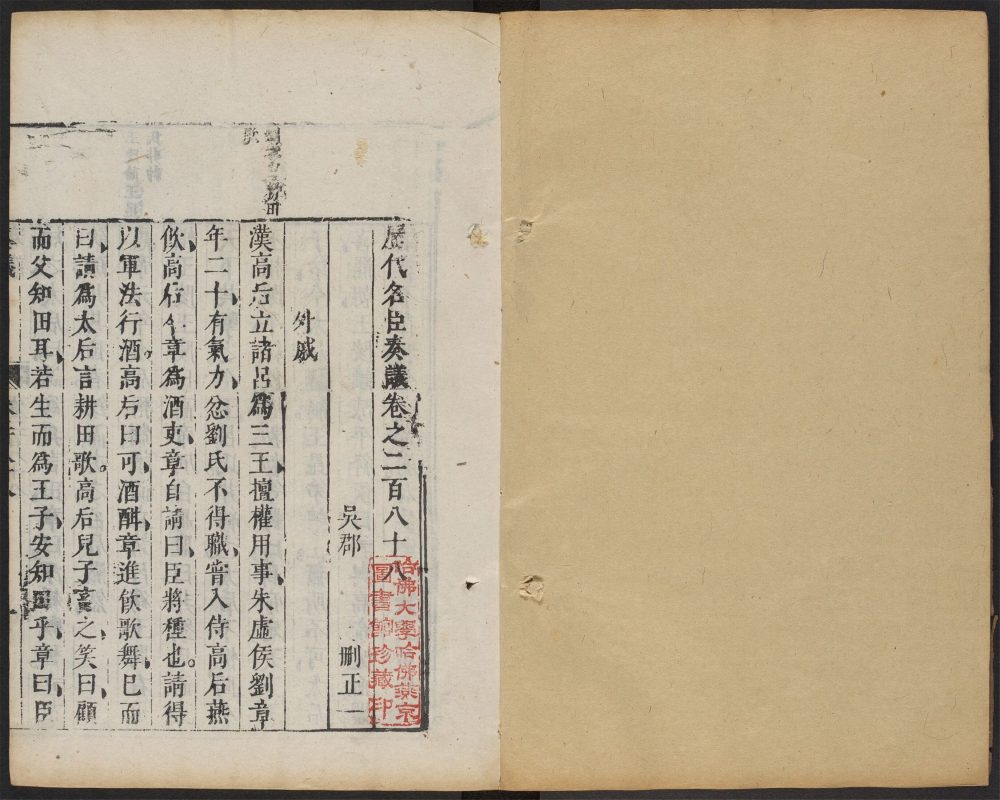 歷代名臣奏議卷之二百八十八
吳郡 刪正
哈佛大學哈佛燕京
圖書館珍藏印
外戚
漢高后立諸呂爲三王擅權用事朱虛侯劉章
年二十有氣力忿劉氏不得職嘗入侍高后燕
飲高后令章爲酒吏章自請曰臣將種也請得
以軍法行酒高后曰可酒酣章進飲歌舞已而
曰請爲太后言耕田歌高后兒子畜之笑曰顧
而父知田耳若生而爲王子安知田乎章曰臣
田
歌